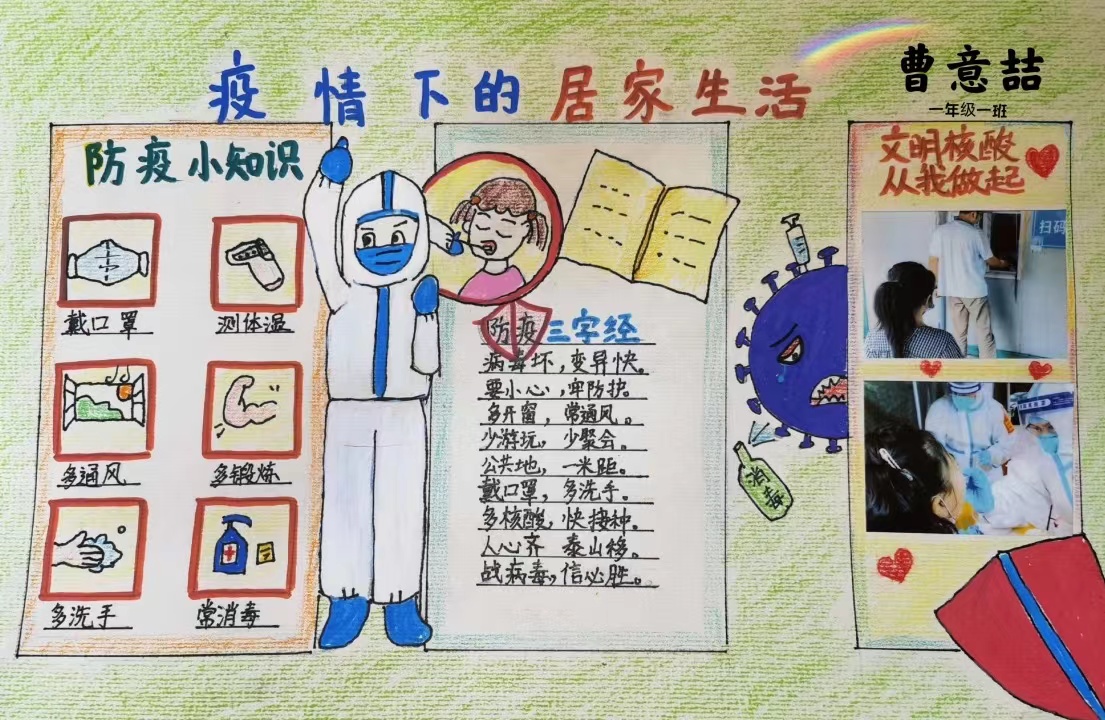 疫情下的居家生活
曹意喆
一年级一班
防疫小知识
戴口罩
测体温
多通风
多锻炼
多洗手
常消毒
防疫三字经
病毒坏，变异快。
要小心，牢防护。
多开窗，常通风。
少游玩，少聚会。
公共地，一米距。
戴口罩，多洗手。
多核酸，快接种。
人心齐 泰山移。
战病毒，信必胜。
消毒
文明核酸
从我做起
扫码